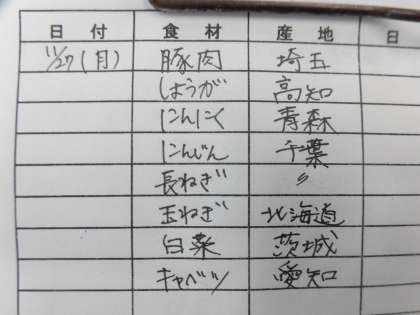 日 付 食 材 産 地 日
11/27(月) 豚肉 埼玉
しょうが 高知
にんにく 青森
にんじん 千葉
長ねぎ 〃
玉ねぎ 北海道
白菜 茨城
キャベツ 愛知